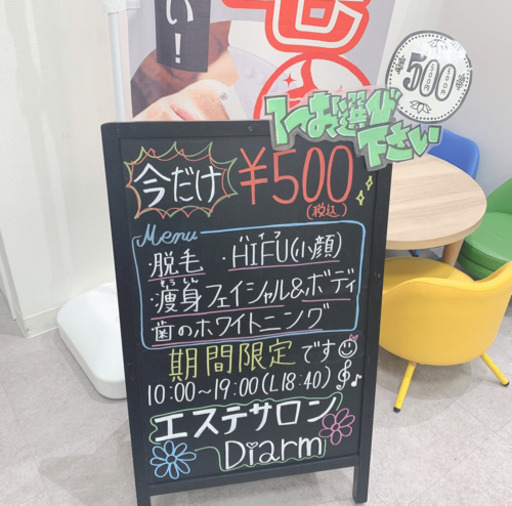 い！
500
1つお選び
下さい
今だけ ¥500
(税込)
Menu
・脱毛 ・HIFU(小顔)
・痩身フェイシャル&ボディ
歯のホワイトニング
期間限定です
10:00～19:00(L18:40)
エステサロン
Diarm